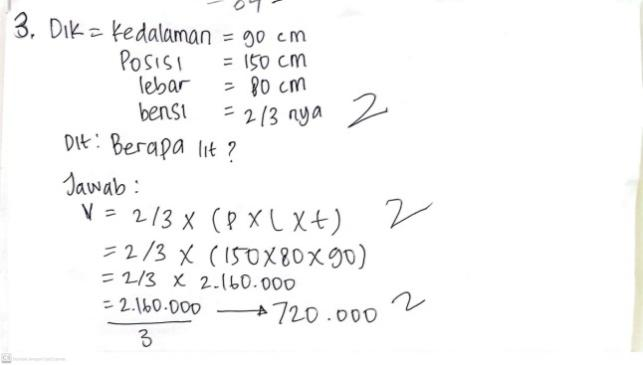 3. Dik = kedalaman = 90 cm
Posisi = 150 cm
lebar = 80 cm
bensi = 2/3 nya 2
Dit: Berapa lit ?
Jawab :
V = 2/3 x (P x L x t) 2
= 2/3 x (150x80x90)
= 2/3 x 2.160.000
= 2.160.000 → 720.000 2
3